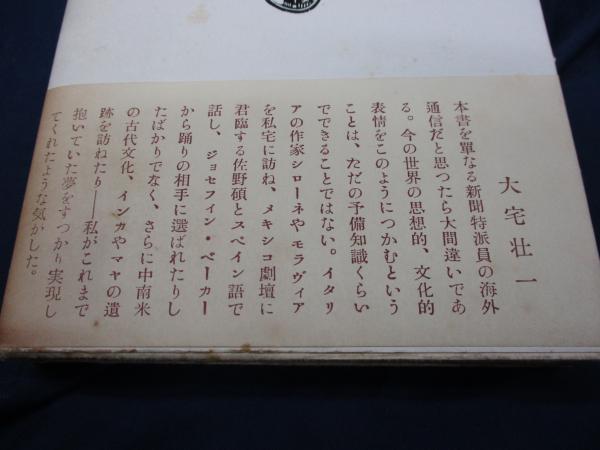 大宅壮一
本書を単なる新聞特派員の海外
通信だと思ったら大間違いであ
る。今の世界の思想的、文化的
表情をこのようにつかむという
ことは、ただの予備知識くらい
でできることではない。イタリ
アの作家シローネやモラヴィア
を私宅に訪ね、メキシコ劇壇に
君臨する佐野碩とスペイン語で
話し、ジョセフイン・ベーカー
から踊りの相手に選ばれたりし
たばかりでなく、さらに中南米
の古代文化、インカやマヤの遺
跡を訪ねたり――私がこれまで
抱いていた夢をすつかり実現し
てくれたような気がした。